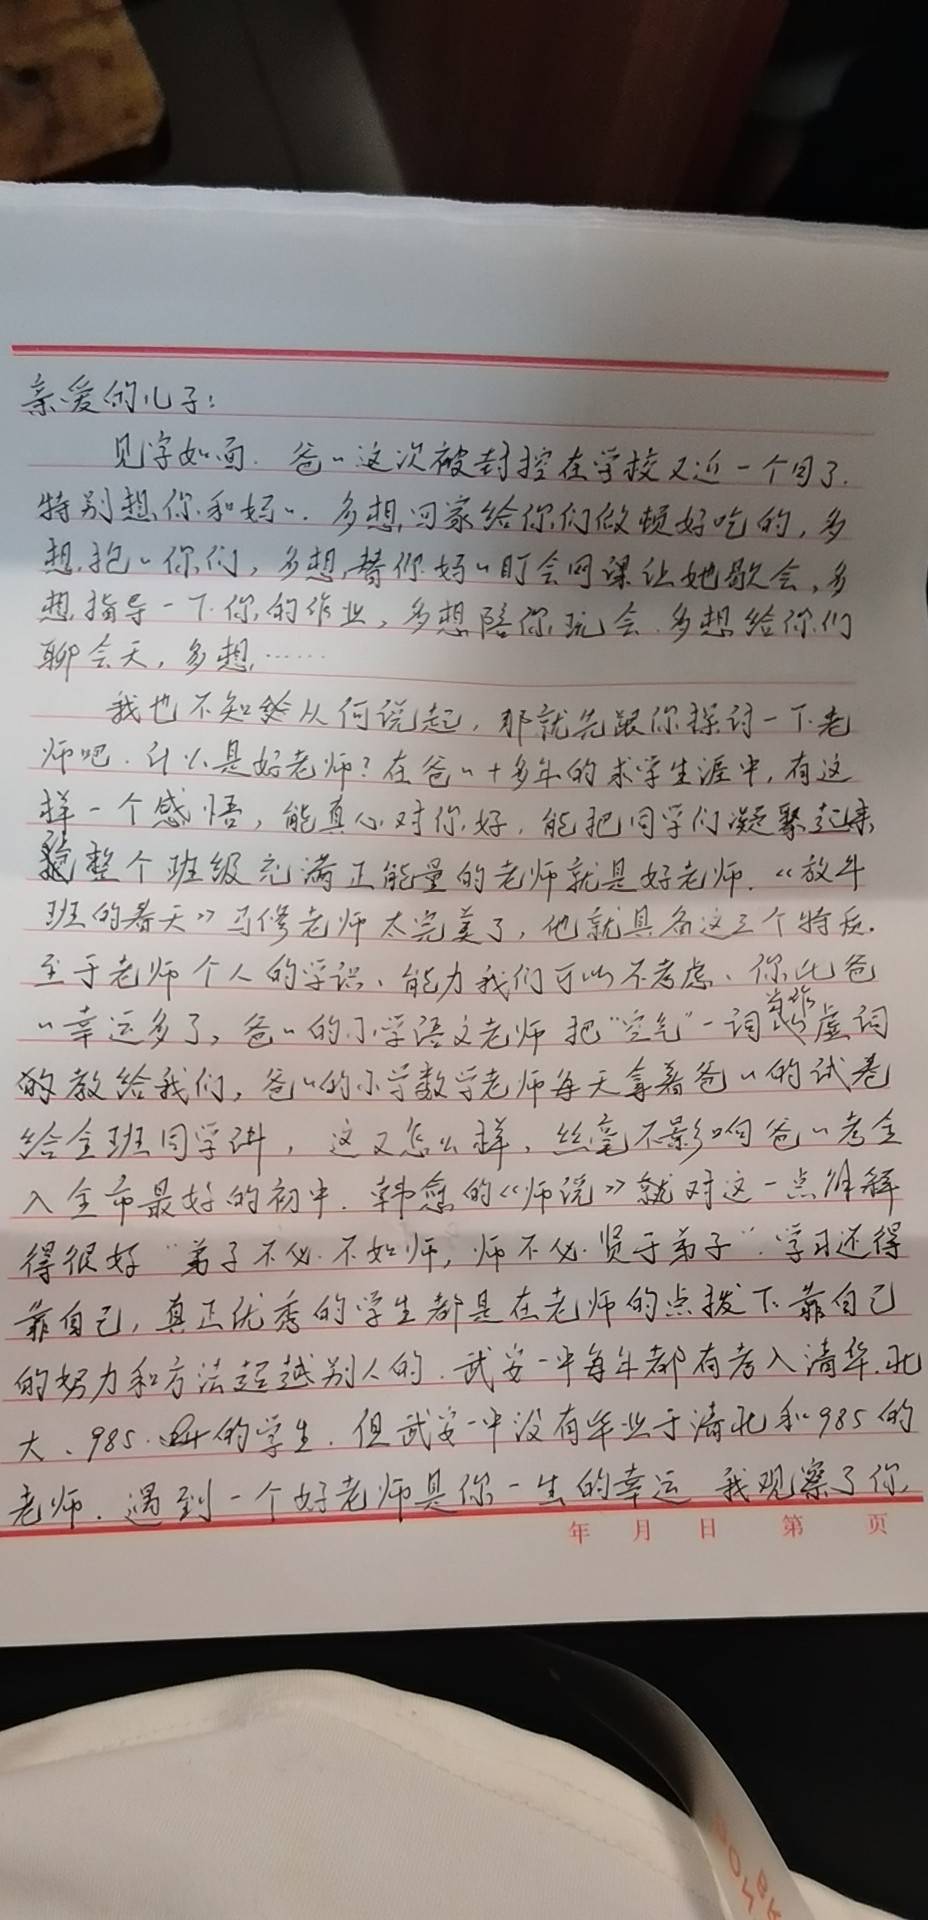 亲爱的儿子：
见字如面.爸〃这次被封控在学校又近一个月了.
特别想你和妈〃.多想回家给你们做顿好吃的,多
想抱〃你们,多想替你妈〃盯会网课让她歇会,多
想指导一下你的作业,多想陪你玩会.多想给你们
聊会天,多想……
我也不知从何说起,那就先跟你探讨一下老
师吧.什么是好老师?在爸〃十多年的求学生涯中,有这
样一个感悟,能真心对你好,能把同学们凝聚起来
整个班级充满正能量的老师就是好老师.《放牛
班的春天》马修老师太完美了,他就具备这三个特质.
至于老师个人的学识、能力我们可以不考虑、你比爸
〃幸运多了,爸〃的小学语文老师把“空气”一词当作虚词
的教给我们,爸〃的小学数学老师每天拿着爸〃的试卷
给全班同学讲,这又怎么样,丝毫不影响爸〃考全
入全市最好的初中.韩愈的《师说》就对这一点解
得很好“弟子不必不如师,师不必贤于弟子”.学习还得
靠自己,真正优秀的学生都是在老师的点拨下靠自己
的努力和方法超越别人的.武安一中每年都有考入清华.北
大、985.的学生.但武安一中没有毕业于清北和985的
老师.遇到一个好老师是你一生的幸运 我观察了你,
年 月 日 第 页